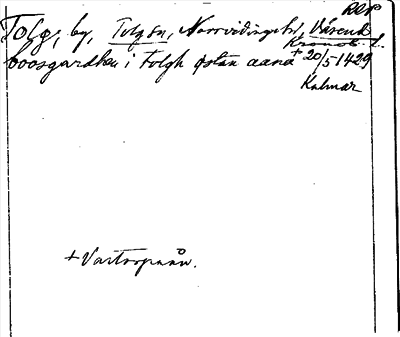 Tolg, by, Tolg sn, Norrvidinge hd, Värend
Kronob. l.
boosgardhen i tolgh østan aana + 20/5 1429
Kalmar
+ Vartorpaån.